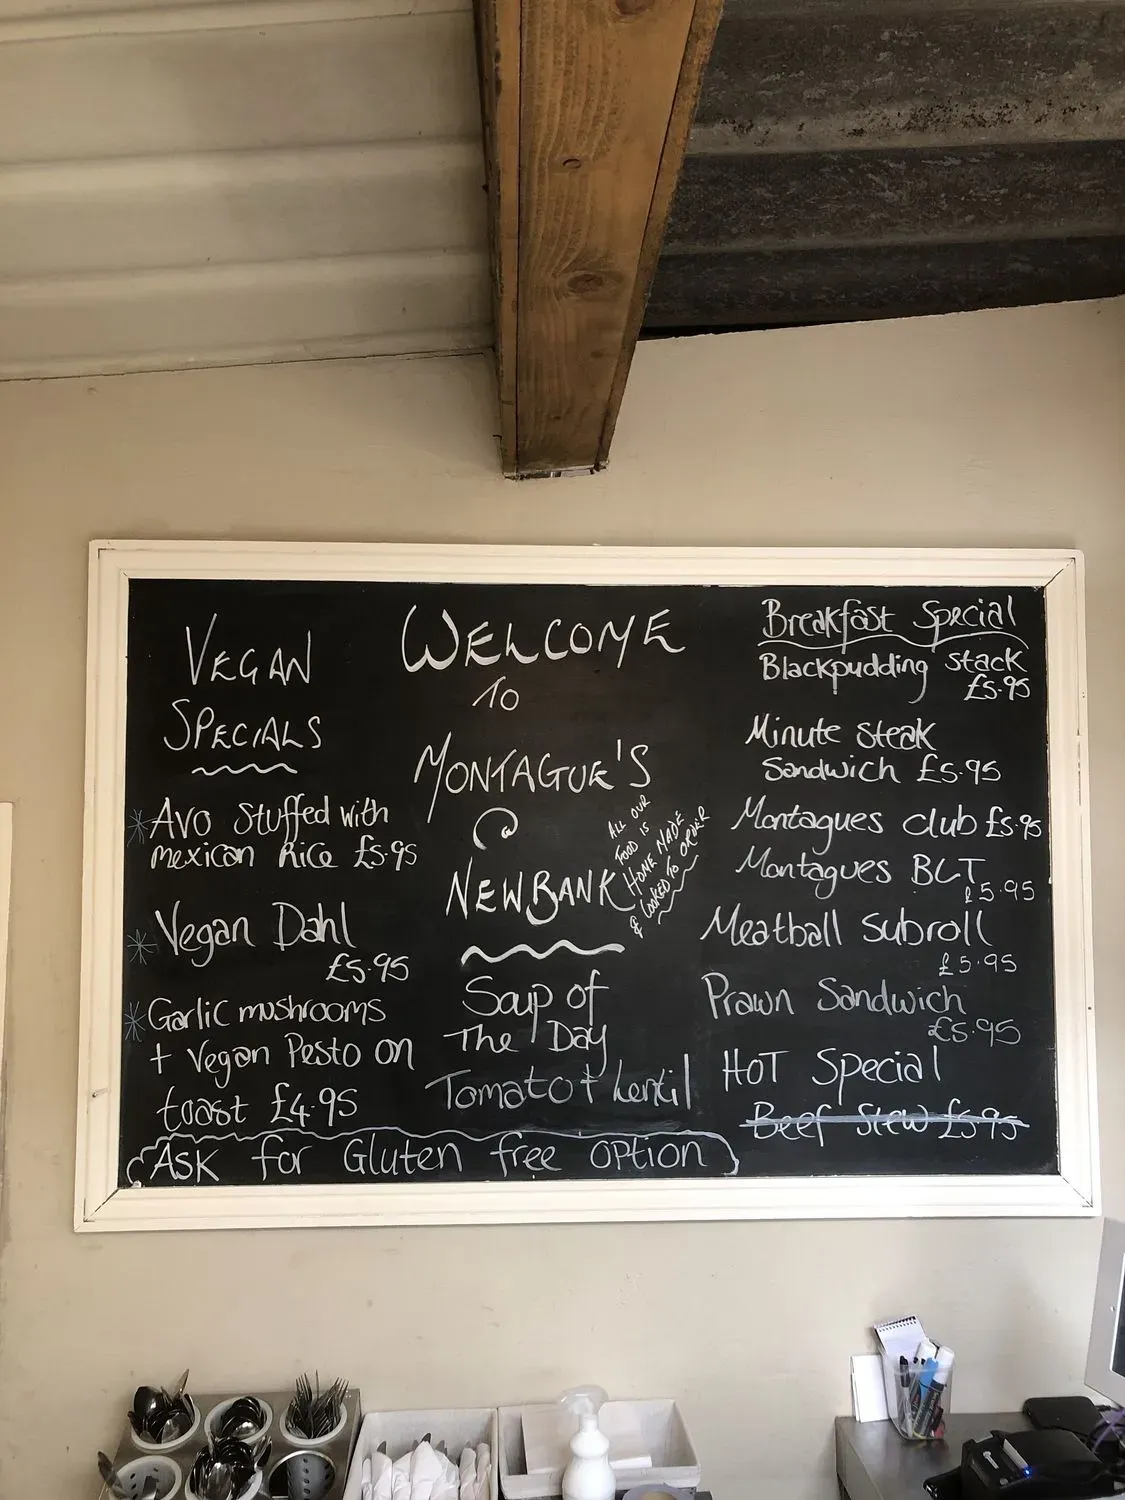 VEGAN
SPECIALS
* Avo Stuffed with
mexican Rice £5.95
* Vegan Dahl
£5.95
* Garlic mushrooms
+ Vegan Pesto on
toast £4.95
WELCOME
To
MONTAGUE'S
@
NEWBANK
ALL OUR
FOOD IS
HOME MADE
& COOKED TO ORDER
Soup of
The Day
Tomato + Lentil
Breakfast Special
Blackpudding stack
£5.95
Minute steak
Sandwich £5.95
Montagues club £5.95
Montagues BLT
£5.95
Meatball subroll
£5.95
Prawn Sandwich
£5.95
HOT Special
Beef Stew £5.95
ASK for Gluten free option